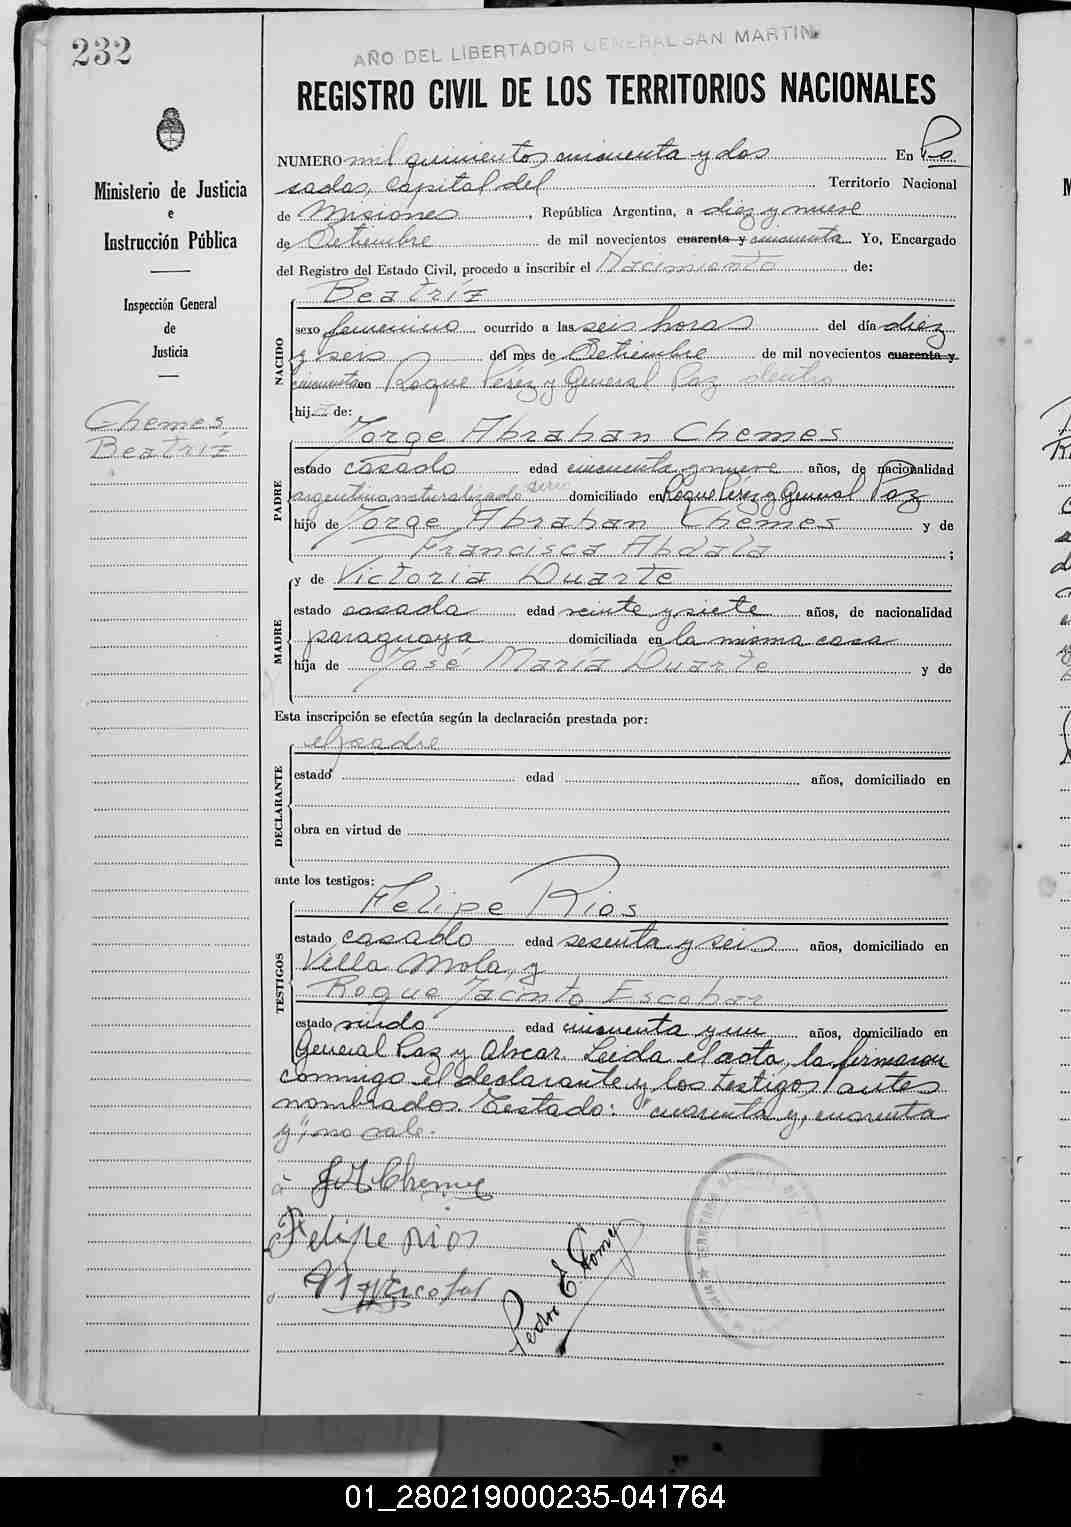 232
AÑO DEL LIBERTADOR GENERAL SAN MARTIN
REGISTRO CIVIL DE LOS TERRITORIOS NACIONALES
Ministerio de Justicia
e
Instrucción Pública
Inspección General
de
Justicia
Chemes
Beatríz
NUMERO mil quinientos cincuenta y dos En Po
sadas, Capital del Territorio Nacional
de Misiones, República Argentina, a diez y nueve
de Setiembre de mil novecientos cuarenta y cincuenta Yo, Encargado
del Registro del Estado Civil, procedo a inscribir el Nacimiento de:
NACIDO
Beatríz
sexo femenino ocurrido a las seis horas del día diez
y seis del mes de Setiembre de mil novecientos cuarenta y
cincuenta en Roque Pérez y General Paz dentro
hija de:
PADRE
Jorge Abrahan Chemes
estado casado edad cincuenta y nueve años, de nacionalidad
argentino naturalizado sirio domiciliado en Roque Pérez y General Paz
hijo de Jorge Abrahan Chemes y de
Francisca Abdala ;
MADRE
y de Victoria Duarte
estado casada edad veinte y siete años, de nacionalidad
paraguaya domiciliada en la misma casa
hija de José María Duarte y de
Esta inscripción se efectúa según la declaración prestada por:
DECLARANTE
el padre
estado edad años, domiciliado en
obra en virtud de
ante los testigos:
TESTIGOS
Felipe Rios
estado casado edad sesenta y seis años, domiciliado en
Villa Mola, y
Roque Jacinto Escobar
estado viudo edad cincuenta y un años, domiciliado en
General Paz y Alvear. Leida el acta, la firmaron
conmigo el declarante y los testigos antes
nombrados. Testado: "cuarenta y, cuarenta
y", no vale.
J A Chemes
Felipe Rios
Escobar
Pedro E.
TERRITORIO NACIONAL DE
01_280219000235-041764